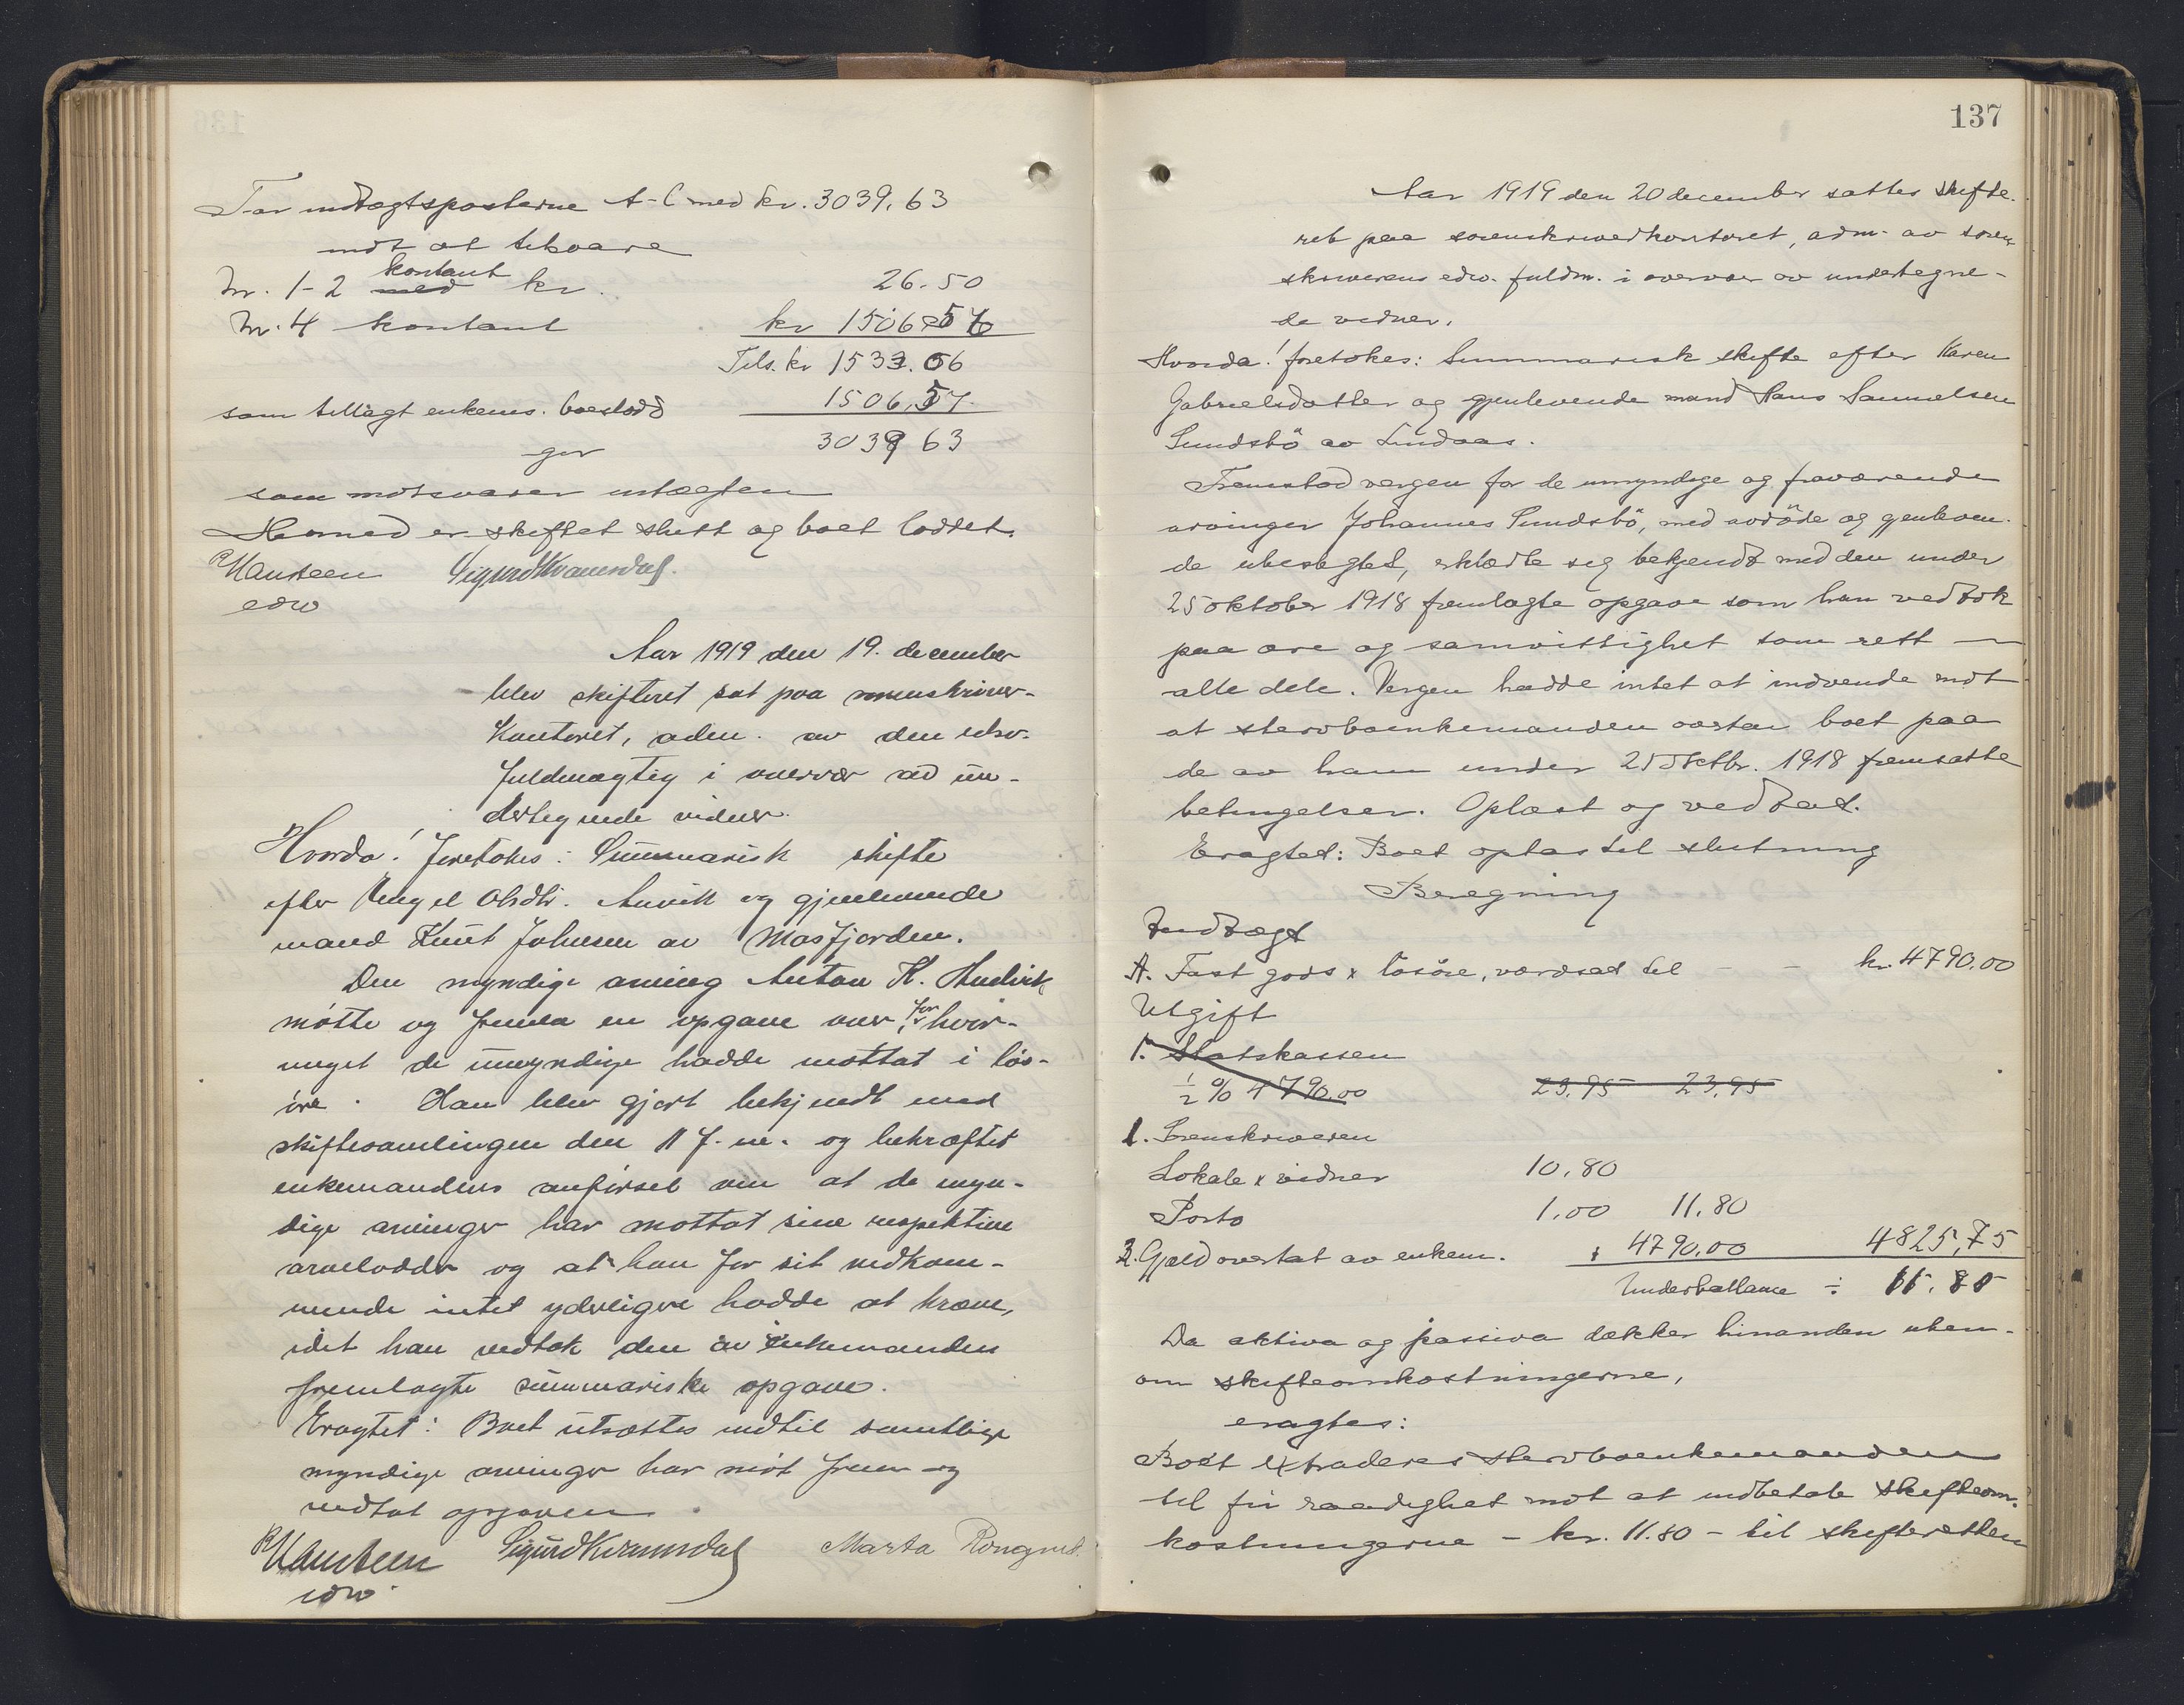 Tar indtægtsposterne A-C med kr. 3039.63
mot at tilsvare
Nr. 1-2 med kontant kr. 26.50
Nr. 4 kontant kr 1506.57
Tils. kr 1533.06
som tillagt enkems. boeslodd 1506,57
gir 3039 63
som motsvarer indtægten
Hermed er skiftet slutt og boet loddet.
R Hansteen Sigurd Kvamsdal
edsv
Aar 1919 den 19. december
blev skifteret sat paa sorenskriver-
kontoret, adm. av den edsv.
fuldmægtig i overvær av un-
dertegnede vidner.
Hvorda! foretokes: Summarisk skifte
efter Olsdtr. og gjenlevende
mand Knut Johnsen av Masfjorden.
Den myndige arving Anton K.
møtte og fremla en opgave over, for hvor-
meget de umyndige hadde mottat i løs-
øre. Han blev gjort bekjendt med
skiftesamlingen den 11 f. m. og bekræftet
enkemandens anførsel om at de myn-
dige arvinger har mottat sine respektive
arvelodder og at han for sit vedkom-
mende intet yderligere hadde at kræve,
idet han vedtok den av enkemanden
fremlagte summariske opgave.
Eragtet: Boet utsættes indtil samtlige
myndige arvinger har møt frem og
vedtat opgaven.
R Hansteen Sigurd Kvamsdal Marta
edsv.
137
Aar 1919 den 20 december sattes skifte-
ret paa sorenskriverkontoret, adm. av soren-
skriverens edsv. fuldm. i overvær av undertegne-
de vidner.
Hvorda! foretokes: Summarisk skifte efter Karen
Gabrielsdatter og gjenlevende mand Hans Samuelsen
Sundsbö av Lindaas.
Fremstod vergen for de umyndige og fraværende
arvinger Johannes Sundsbö, med avdöde og gjenleven-
de ubeslegtet, erklærte sig bekjendt med den under
25 oktober 1918 fremlagte opgave som han vedtok
paa ære og samvittighet som rett i
alle dele. Vergen hadde intet at indvende mot
at stervboenkemanden overtar boet paa
de av ham under 25 oktbr. 1918 fremsatte
betingelser. Oplæst og vedtat.
Eragtet: Boet optas til slutning
Beregning
Indtægt
A. Fast gods x løsöre, værdsat til - - kr. 4790.00
Utgift
1. Statskassen
1/2 % 4790.00 23,95 23,95
1. Sorenskriveren
Lokale x vidner 10.80
Porto 1.00 11.80
2. Gjæld overtat av enkem. 4790.00 4825,75
Underballance ÷ 11.80
Da aktiva og passiva dækker hinanden uten-
om skifteomkostningerne,
eragtes:
Boet extraderes stervboenkemanden
til fri raadighet mot at indbetale skifteom-
kostningerne - kr. 11.80 - til skifteretten